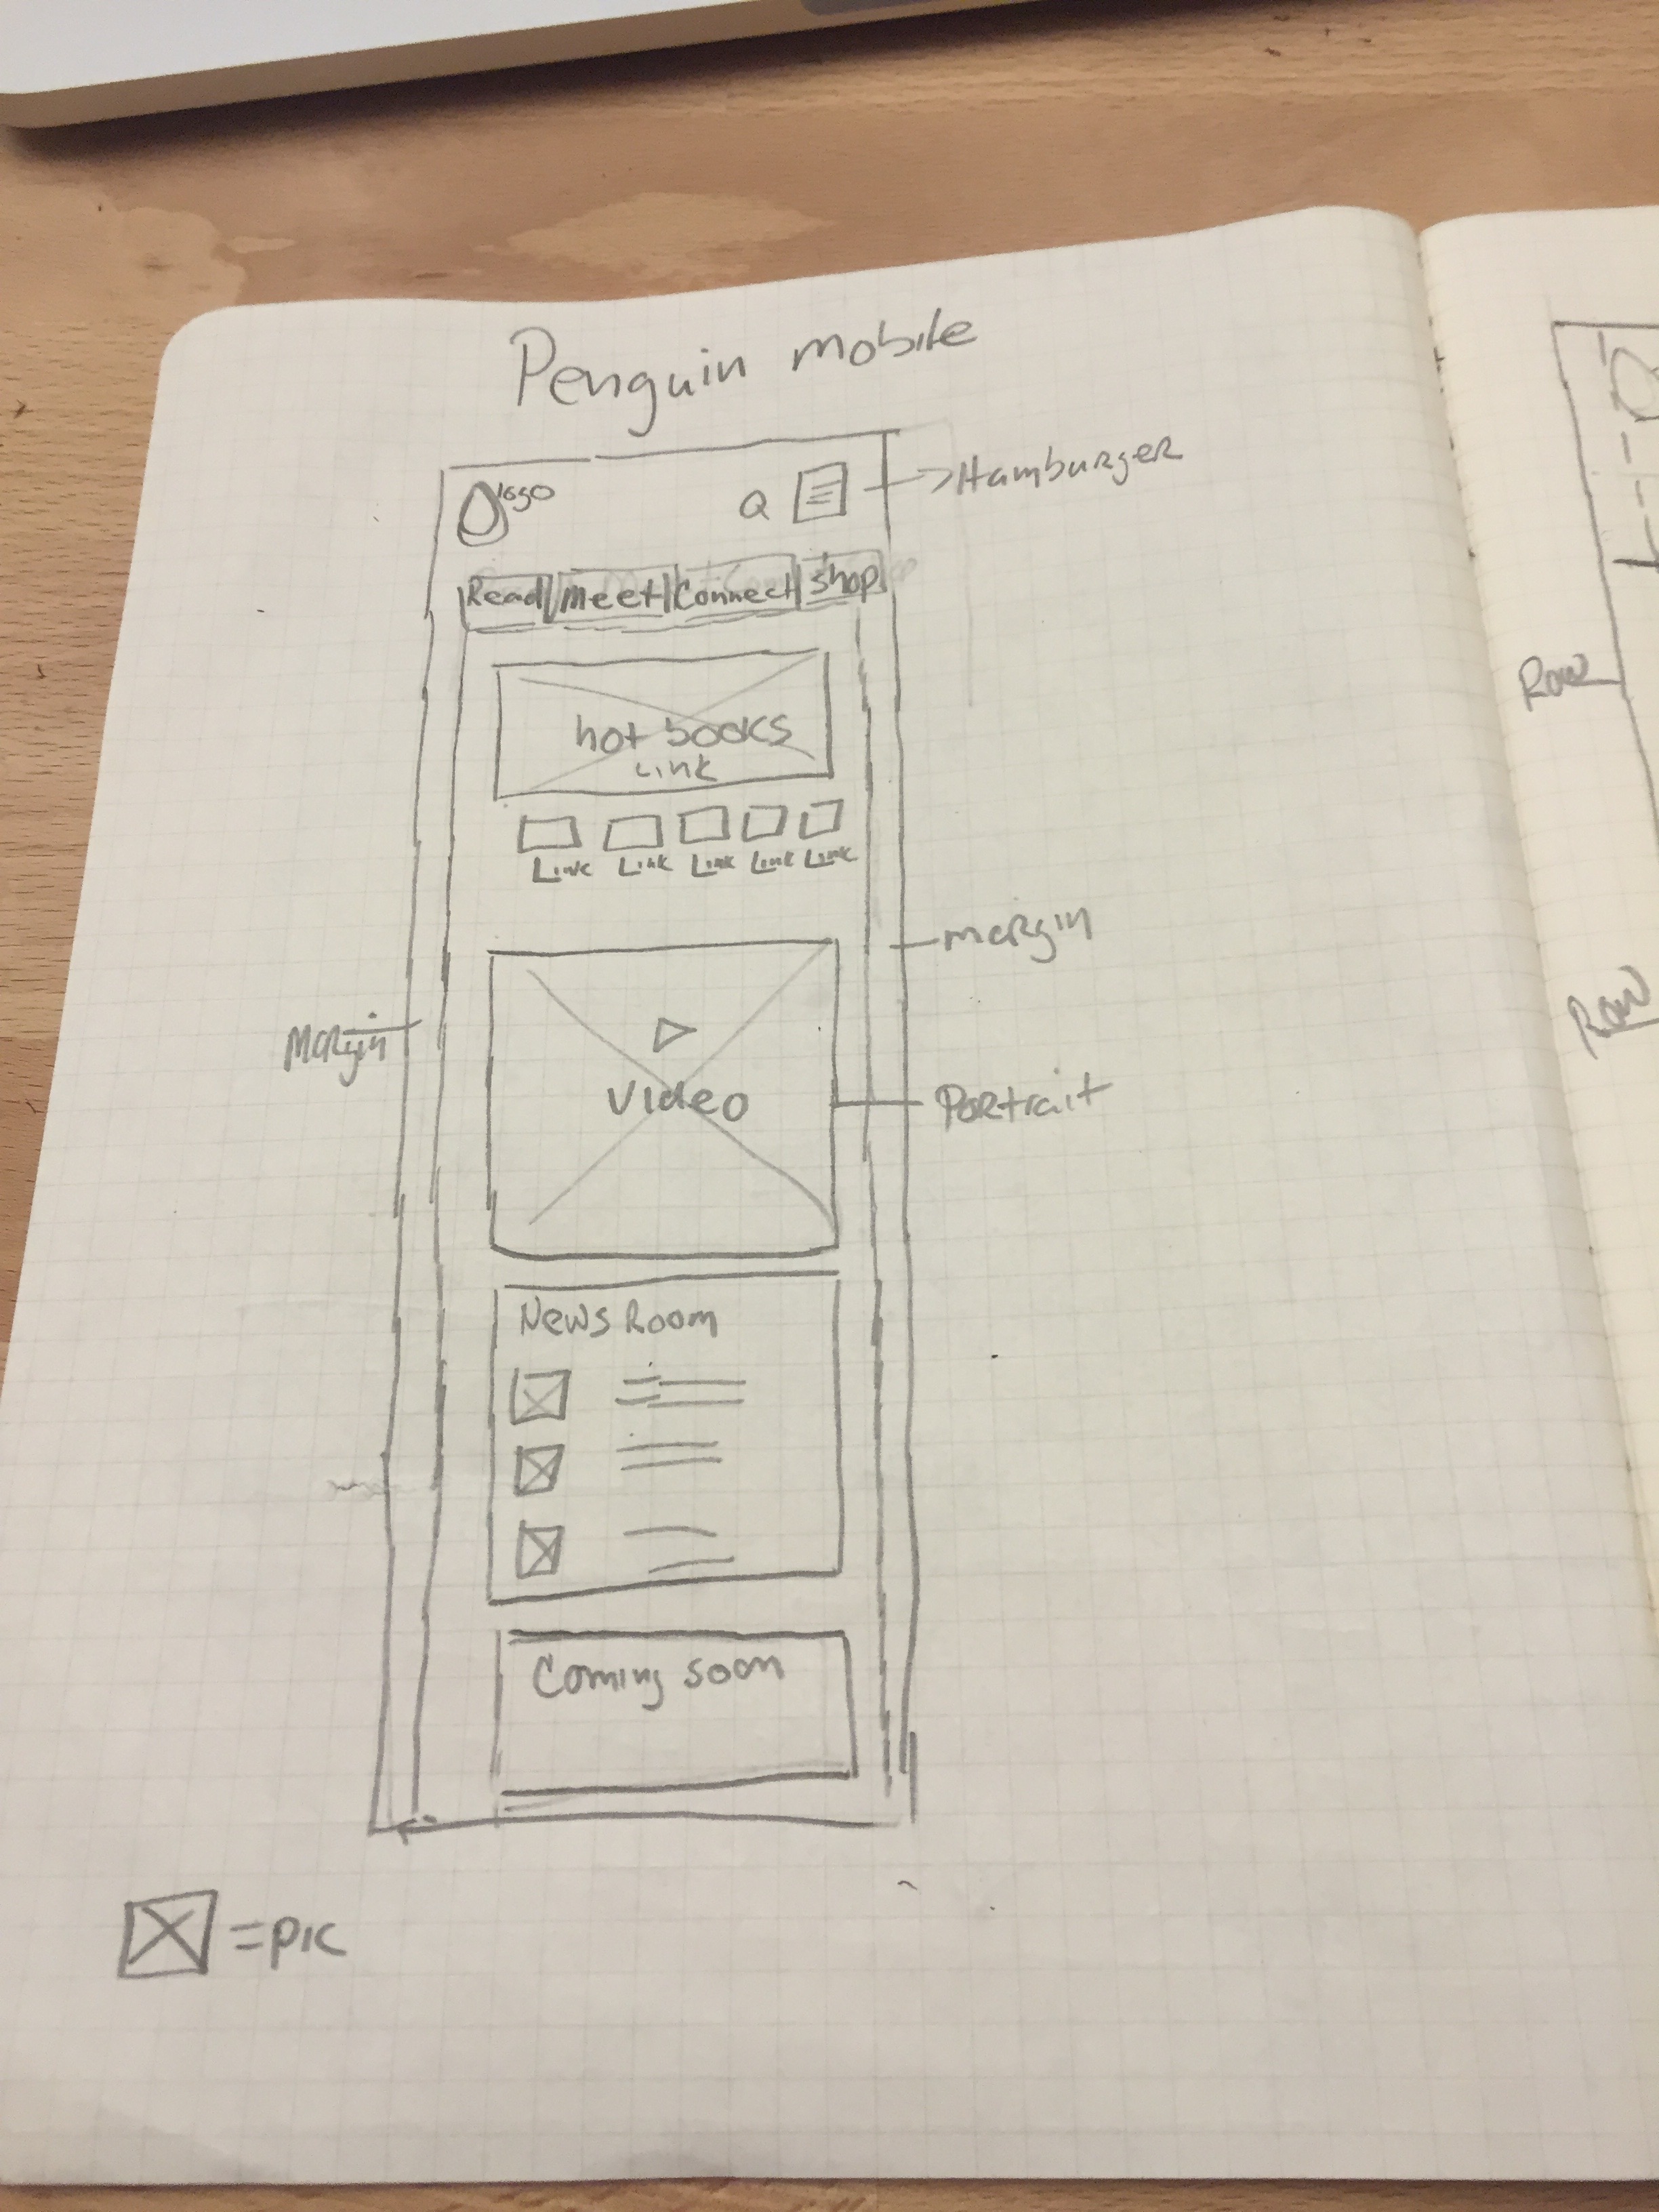 Penguin mobile
logo
Q
Hamburger
Read Meet Connect Shop
hot books
Link
Link Link Link Link Link
margin
Margin
Video
Portrait
News Room
Coming soon
=PIC
Row
Row